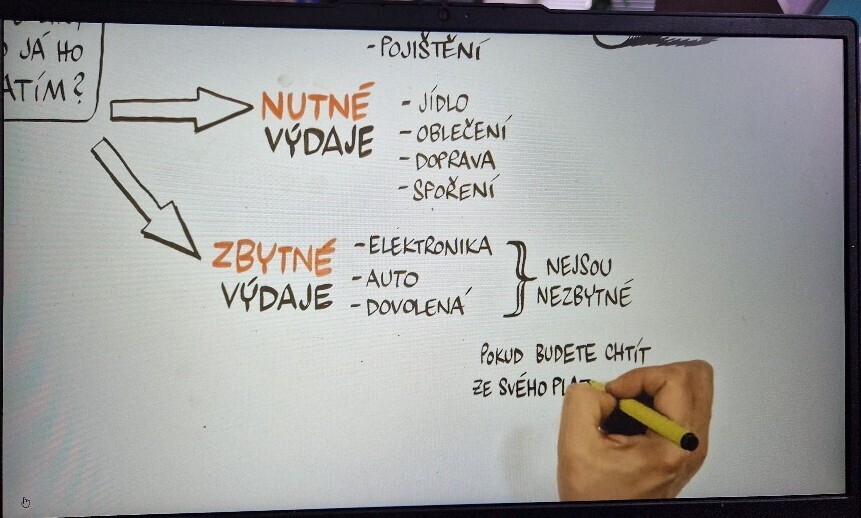 JÁ HO
ATÍM?
-POJIŠTĚNÍ
NUTNÉ
VÝDAJE
- JÍDLO
- OBLEČENÍ
- DOPRAVA
- SPOŘENÍ
ZBYTNÉ
VÝDAJE
- ELEKTRONIKA
- AUTO
- DOVOLENÁ
NEJSOU
NEZBYTNÉ
POKUD BUDETE CHTÍT
ZE SVÉHO PLAT